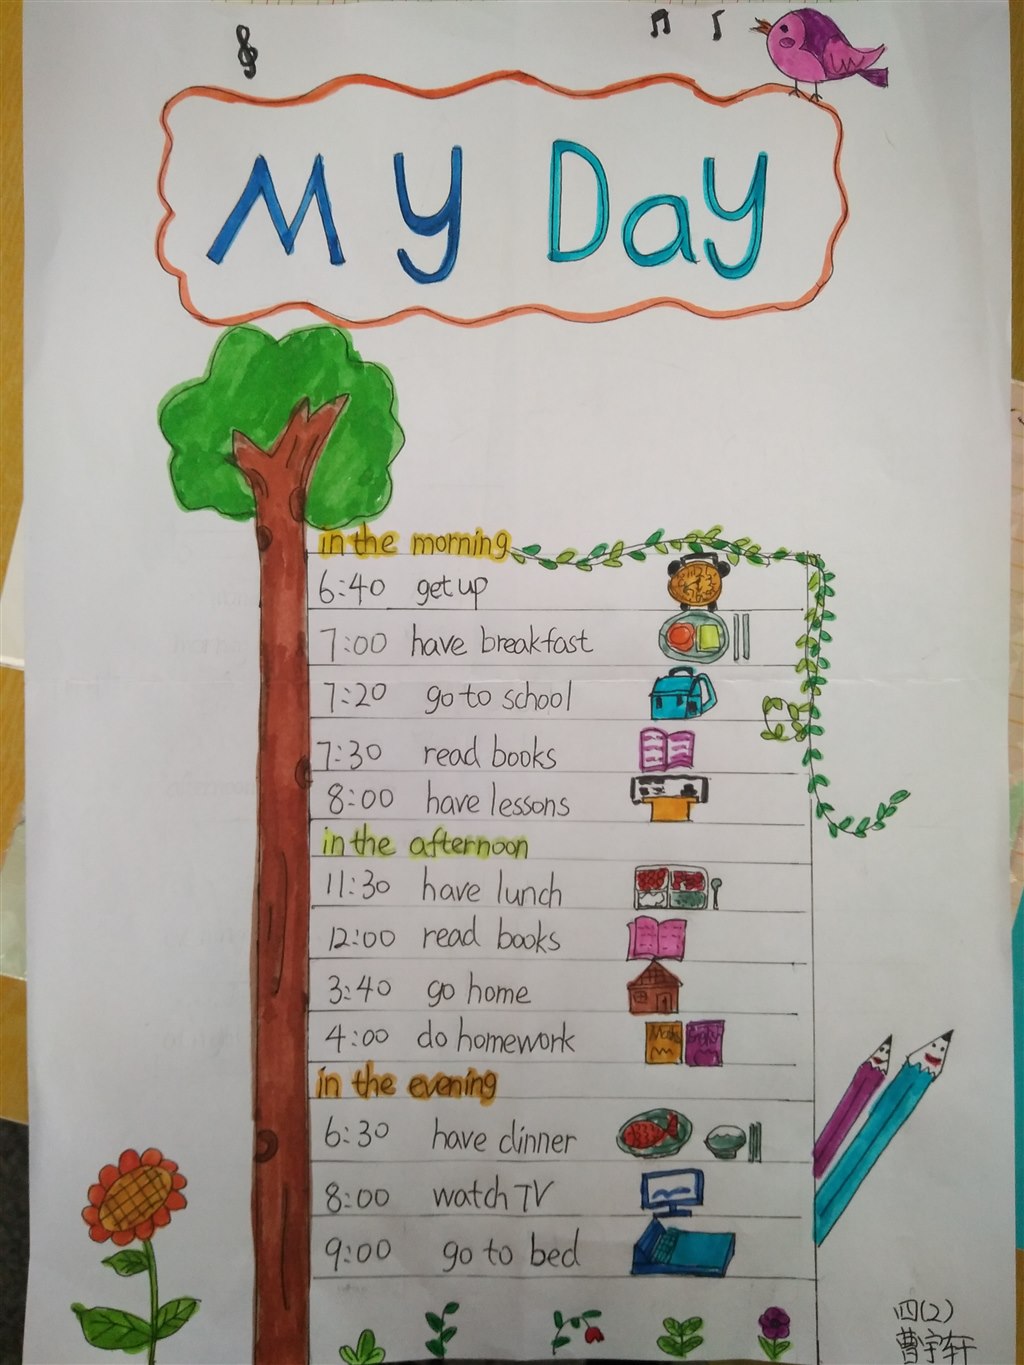 My Day
in the morning
6:40 get up
7:00 have breakfast
7:20 go to school
7:30 read books
8:00 have lessons
in the afternoon
11:30 have lunch
12:00 read books
3:40 go home
4:00 do homework
Maths English
in the evening
6:30 have dinner
8:00 watch TV
9:00 go to bed
四(2)
曹宇轩